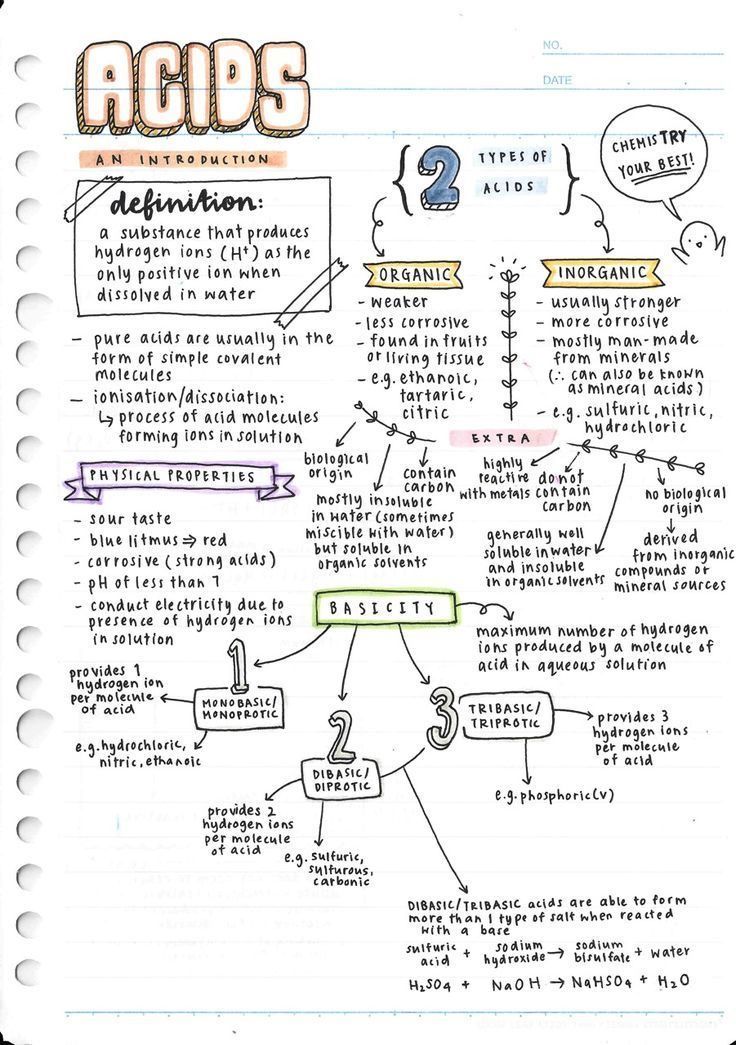 ACIDS
AN INTRODUCTION
NO.
DATE
definition:
a substance that produces
hydrogen ions (H⁺) as the
only positive ion when
dissolved in water
- pure acids are usually in the
form of simple covalent
molecules
- ionisation/dissociation:
↳ process of acid molecules
forming ions in solution
PHYSICAL PROPERTIES
- sour taste
- blue litmus ⇒ red
- corrosive (strong acids)
- pH of less than 7
- conduct electricity due to
presence of hydrogen ions
in solution
{ 2 TYPES OF
ACIDS }
CHEMISTRY
YOUR BEST!
ORGANIC
- weaker
- less corrosive
- found in fruits
or living tissue
- e.g. ethanoic,
tartaric,
citric
INORGANIC
- usually stronger
- more corrosive
- mostly man-made
from minerals
(∴ can also be known
as mineral acids)
- e.g. sulfuric, nitric,
hydrochloric
EXTRA
biological
origin
mostly insoluble
in water (sometimes
miscible with water)
but soluble in
organic solvents
contain
carbon
highly
reactive
with metals
do not
contain
carbon
generally well
soluble in water
and insoluble
in organic solvents
no biological
origin
derived
from inorganic
compounds or
mineral sources
BASICITY
maximum number of hydrogen
ions produced by a molecule of
acid in aqueous solution
1
MONOBASIC/
MONOPROTIC
provides 1
hydrogen ion
per molecule
of acid
e.g. hydrochloric,
nitric, ethanoic
2
DIBASIC/
DIPROTIC
provides 2
hydrogen ions
per molecule
of acid
e.g. sulfuric,
sulfurous,
carbonic
3
TRIBASIC/
TRIPROTIC
provides 3
hydrogen ions
per molecule
of acid
e.g. phosphoric(v)
DIBASIC/TRIBASIC acids are able to form
more than 1 type of salt when reacted
with a base
sulfuric acid + sodium hydroxide → sodium bisulfate + water
H₂SO₄ + NaOH → NaHSO₄ + H₂O